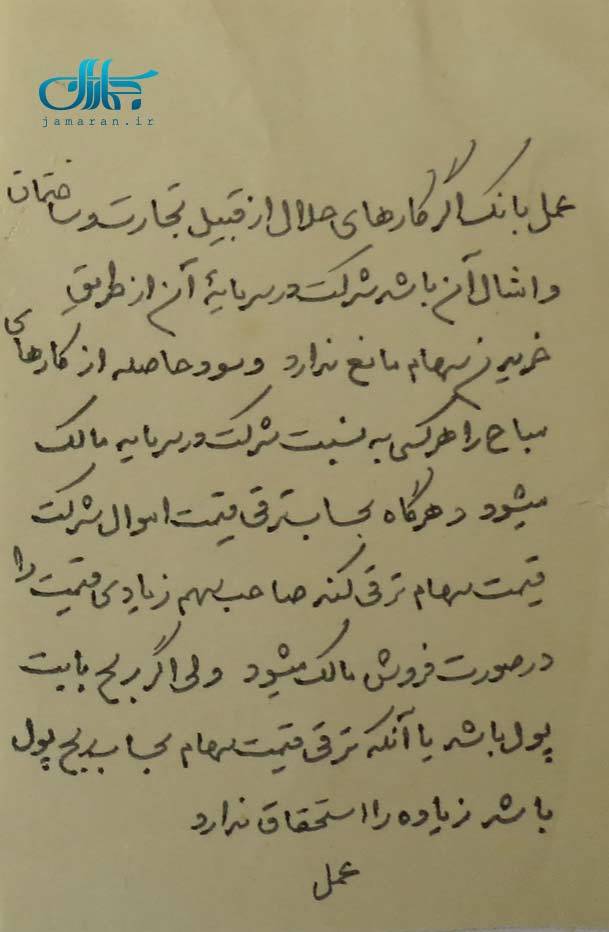 جماران
jamaran.ir
عمل بانک اگر کارهای حلال از قبیل تجارت و ساختمان
و امثال آن باشد شرکت در سرمایهٔ آن از طریق
خریدن سهام مانع ندارد و سود حاصله از کارهای
مباح را هر کسی به نسبت شرکت در سرمایه مالک
میشود و هرگاه بحساب ترقی قیمت اموال شرکت
قیمت سهام ترقی کند صاحب سهم زیادی قیمت را
در صورت فروش مالک میشود ولی اگر ربح بابت
پول باشد یا آنکه ترقی قیمت سهام بحساب ربح پول
باشد زیاده را استحقاق ندارد
عمل